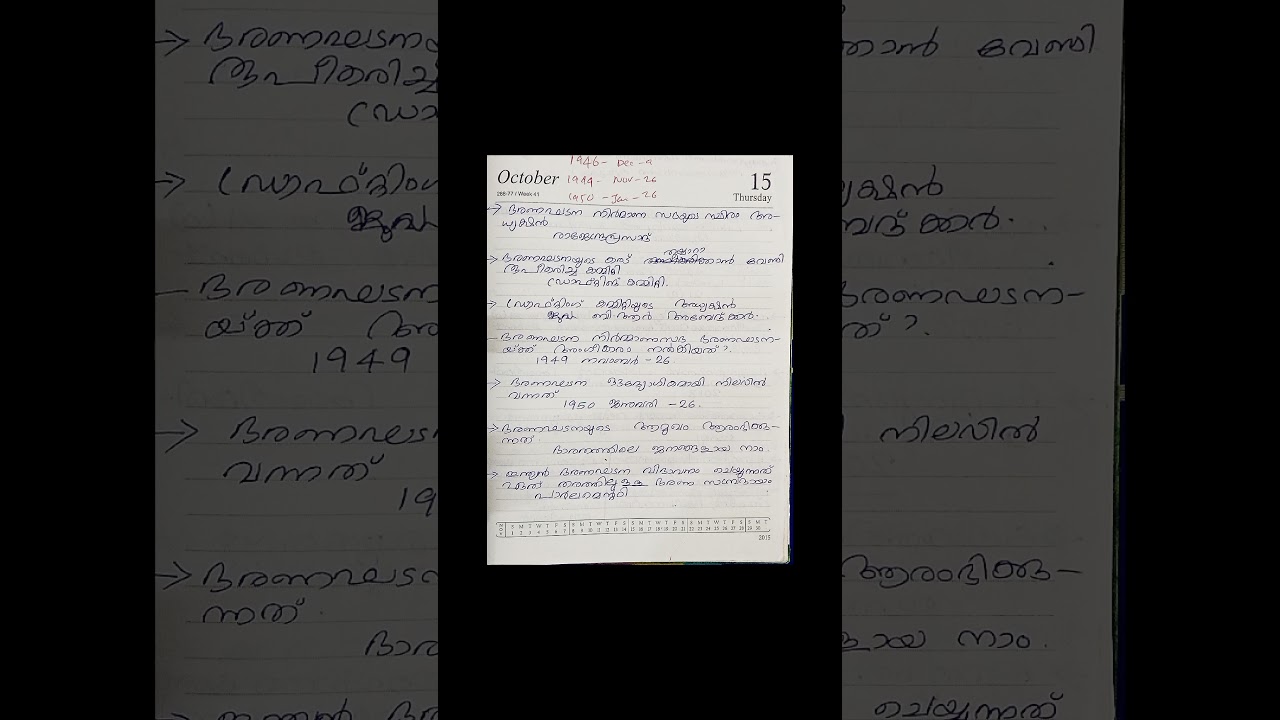 1946- Dec -9
October 1949- Nov -26 15
288-77 / Week 41 1950 -Jan -26 Thursday
→ ഭരണഘടന നിർമാണ സഭയുടെ സ്ഥിരം അ-
ധ്യക്ഷൻ
രാജേന്ദ്രപ്രസാദ്
തയ്യാറാ
→ ഭരണഘടനയുടെ കരട് ക്കാൻ വേണ്ടി
രൂപീകരിച്ച കമ്മിറ്റി
ഡ്രാഫ്റ്റിങ് കമ്മിറ്റി.
→ ഡ്രാഫ്റ്റിംഗ് കമ്മിറ്റിയുടെ അധ്യക്ഷൻ
ബി.ആർ അംബേദ്ക്കർ.
- ഭരണഘടന നിർമ്മാണസഭ ഭരണഘടന-
യ്ക്ക് അംഗീകാരം നൽകിയത്?.
1949 നവംബർ -26.
→ ഭരണഘടന ഔദ്യോഗികമായി നിലവിൽ
വന്നത്
1950 ജനുവരി -26.
→ ഭരണഘടനയുടെ ആമുഖം ആരംഭിക്കു-
ന്നത്
ഭാരതത്തിലെ ജനങ്ങളായ നാം.
→ ഇന്ത്യൻ ഭരണഘടന വിഭാവനം ചെയ്യുന്നത്
ഏത് തരത്തിലുള്ള ഭരണ സമ്പ്രദായം
പാർലമെന്ററി
S M T W T F S S M T W T F S S M T W T F S S M T W T F S S M T
1 2 3 4 5 6 7 8 9 10 11 12 13 14 15 16 17 18 19 20 21 22 23 24 25 26 27 28 29 30
2015